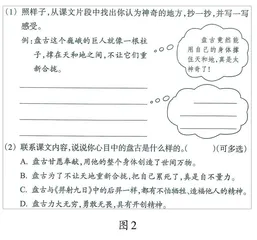 (1) 照样子,从课文片段中找出你认为神奇的地方,抄一抄,并写一写
感受。
例:盘古这个巍峨的巨人就像一根柱
子,撑在天和地之间,不让它们重
新合拢。
盘古竟然能
用自己的身体撑
住天和地,真是太
神奇了!
(2) 联系课文内容,说说你心目中的盘古是什么样的。( )(可多选)
A. 盘古甘愿奉献,用他的整个身体创造了世间万物。
B. 盘古为了不让天地重新合拢,把自己累死了,真是自不量力。
C. 盘古与《羿射九日》中的后羿一样,都有不怕牺牲、造福他人的精神。
D. 盘古力大无穷,勇敢无畏,具有开创精神。
图2